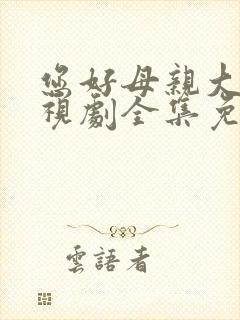 您好母親大
視劇全集免
雲語者